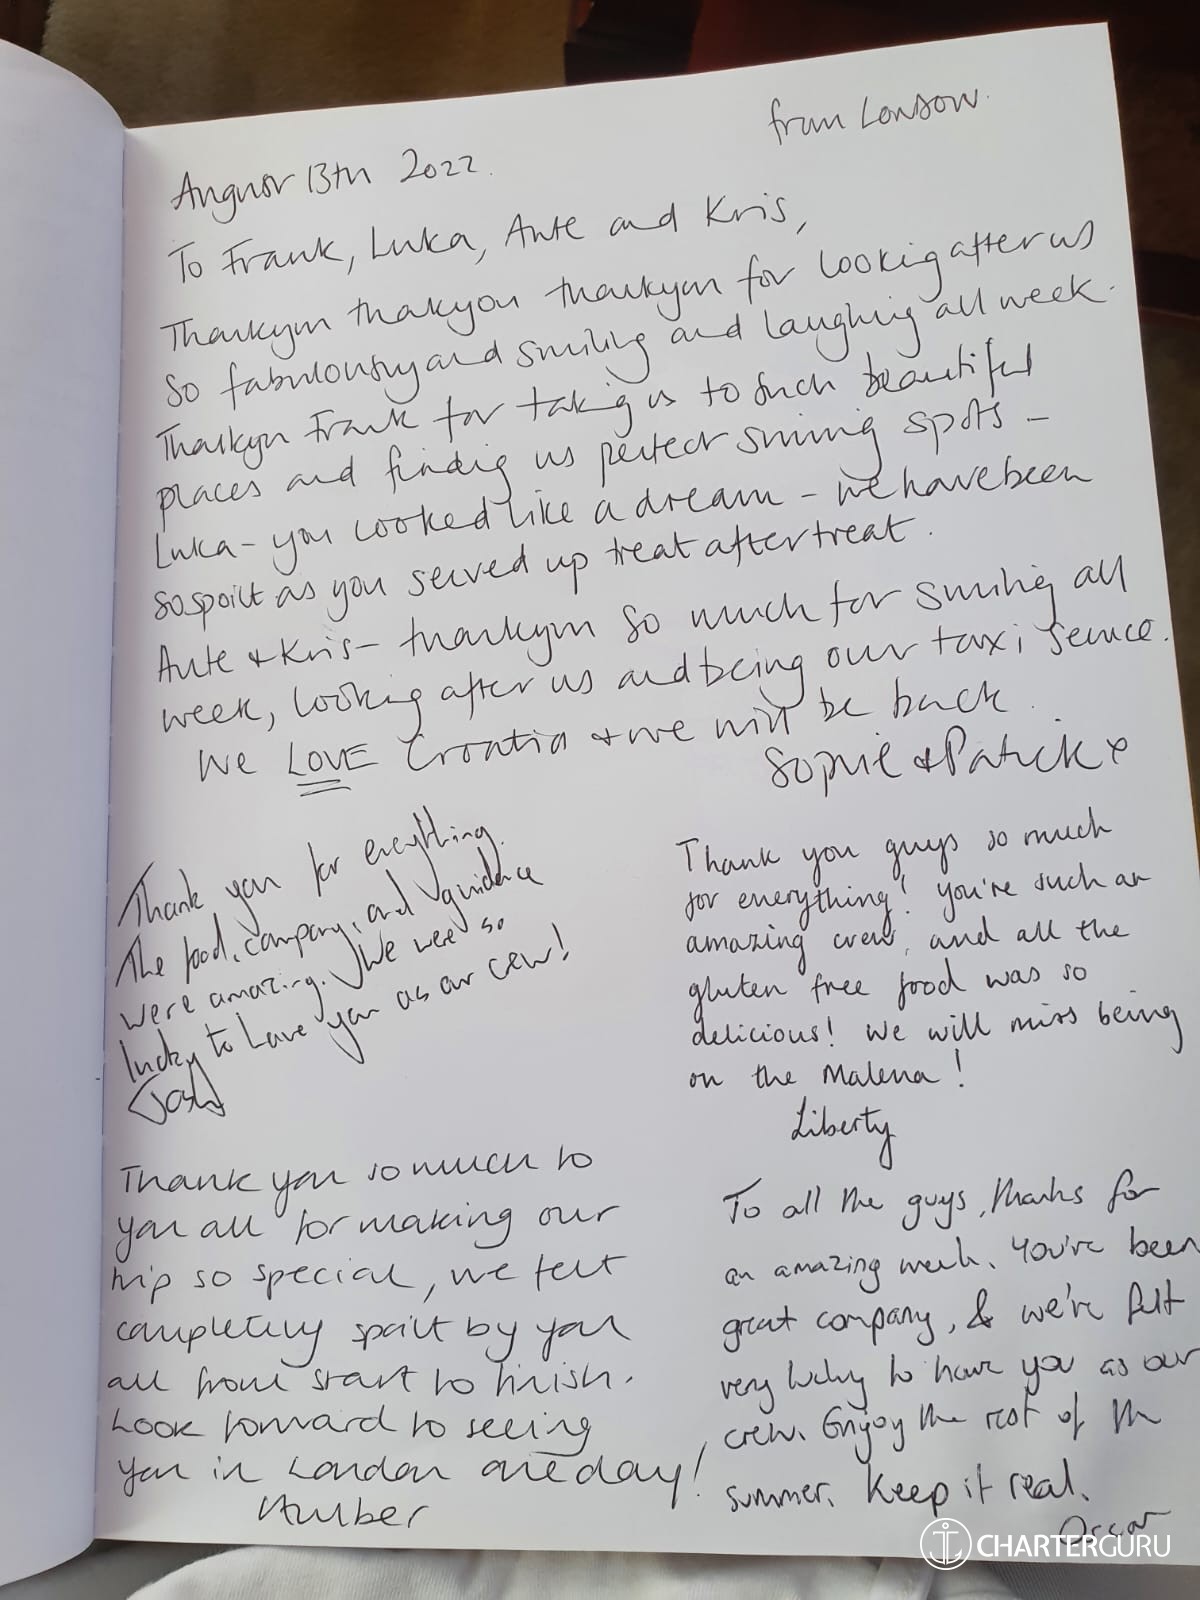 from London.
August 13th 2022.
To Frank, Luka, Ante and Kris,
Thankyou thakyou thankyou for looking after us
so fabulously and smiling and laughing all week.
Thankyou Frank for taking us to such beautiful
places and finding us perfect swimming spots -
Luka - you cooked like a dream - we have been
so spoilt as you served up treat after treat.
Ante & Kris - thankyou so much for smiling all
week, looking after us and being our taxi service.
We LOVE Croatia & we will be back.
Sophie & Patrick x
Thank you for everything.
The food, company, and guidance
were amazing. We were so
lucky to have you as our crew!
Josh
Thank you guys so much
for everything! You're such an
amazing crew, and all the
gluten free food was so
delicious! We will miss being
on the Malena!
Liberty
Thank you so much to
you all for making our
trip so special, we felt
completely spoilt by you
all from start to finish.
Look forward to seeing
you in London one day!
Amber
To all the guys, thanks for
an amazing week. You've been
great company, & we've felt
very lucky to have you as our
crew. Enjoy the rest of the
summer. Keep it real.
Oscar
CHARTERGURU